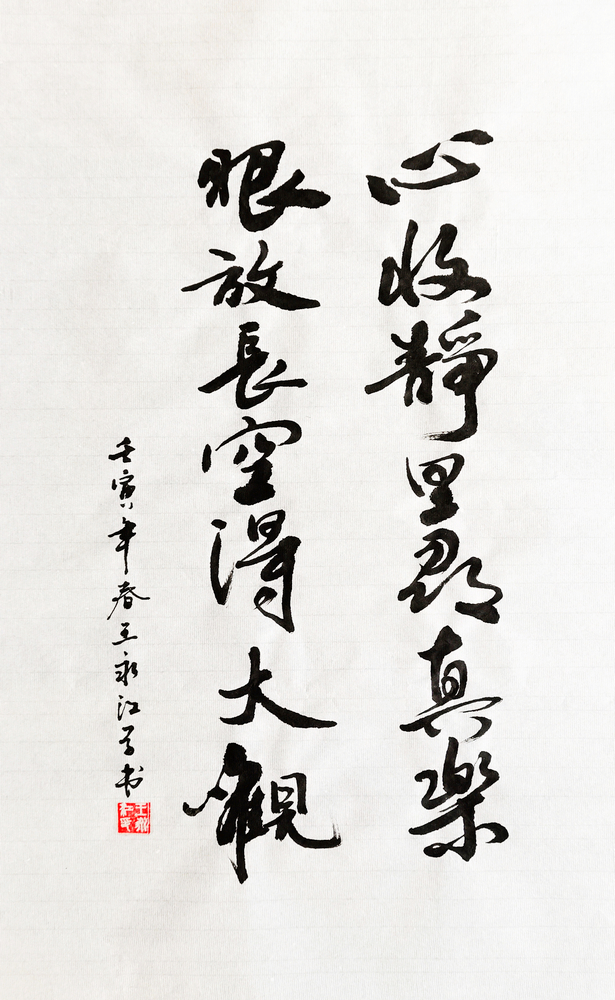 心收靜里尋真樂
眼放長空得大觀
壬寅年春王永江書